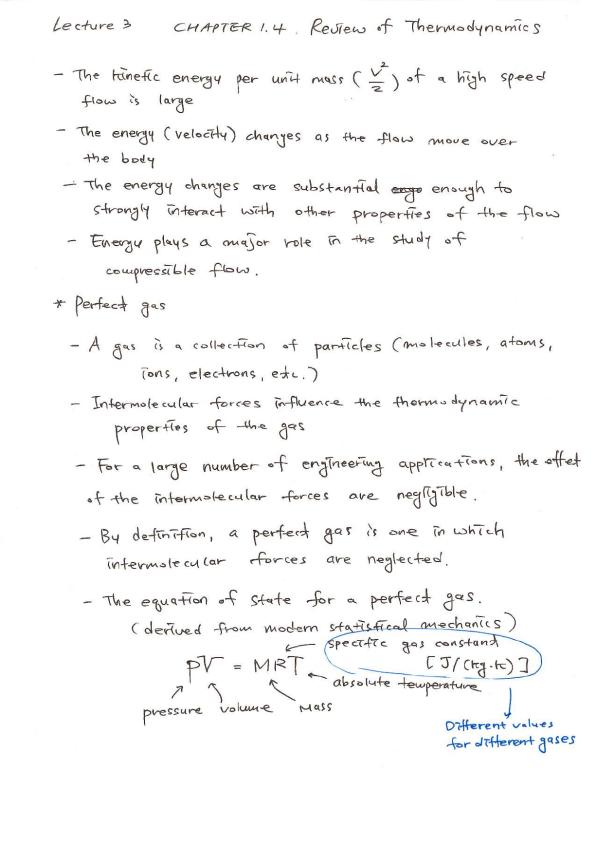 Lecture 3 CHAPTER 1.4. Review of Thermodynamics
- The kinetic energy per unit mass (V²/2) of a high speed
flow is large
- The energy (velocity) changes as the flow move over
the body
- The energy changes are substantial enough to
strongly interact with other properties of the flow
- Energy plays a major role in the study of
compressible flow.
* Perfect gas
- A gas is a collection of particles (molecules, atoms,
ions, electrons, etc.)
- Intermolecular forces influence the thermodynamic
properties of the gas
- For a large number of engineering applications, the effet
of the intermolecular forces are negligible.
- By definition, a perfect gas is one in which
intermolecular forces are neglected.
- The equation of state for a perfect gas.
(derived from modern statistical mechanics)
specific gas constant
PV = MRT [J/(kg·k)]
absolute temperature
pressure volume Mass
Different values
for different gases